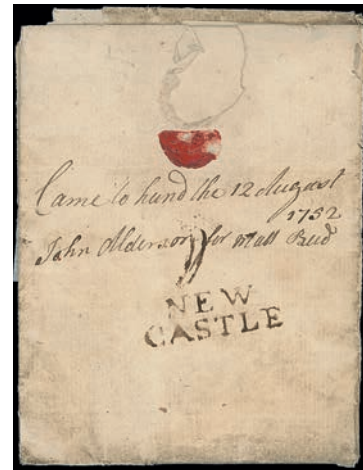 Came to hand the 12 August
1752
John Alderson for Matt Reed
NEW
CASTLE